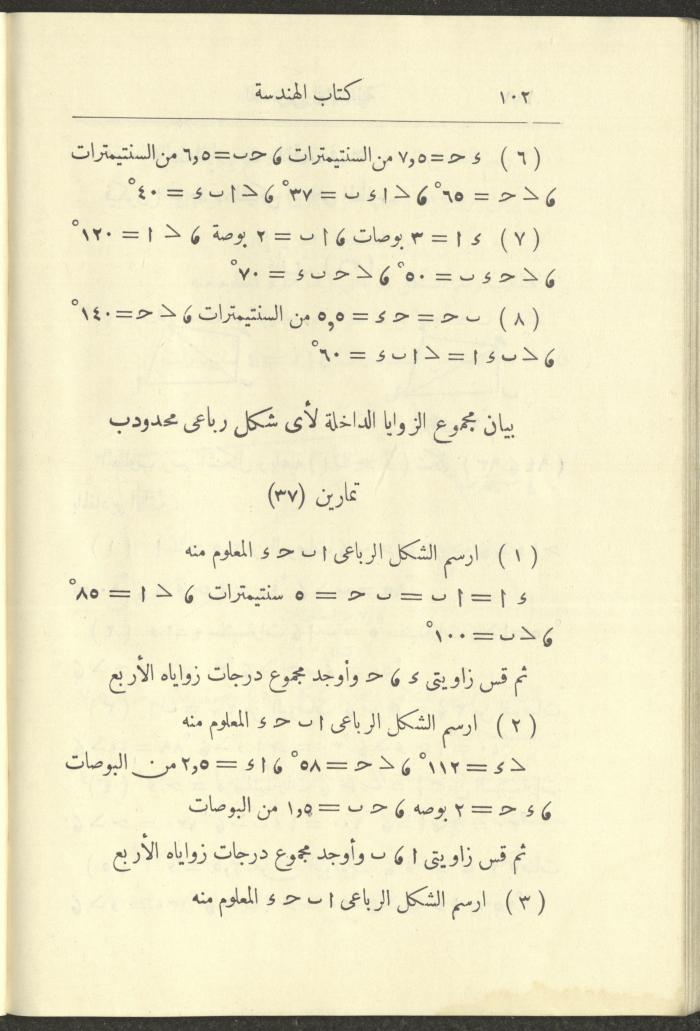 ١٠٢ كتاب الهندسة
(٦) ء ح = ٧,٥ من السنتيمترات ، ح ب = ٦,٥ من السنتيمترات
، > ح = ٦٥° ، > ا ء ب = ٣٧° ، > ا ب ء = ٤٠°
(٧) ء ا = ٣ بوصات ، ا ب = ٢ بوصة ، > ا = ١٢٠°
، > ح ء ب = ٥٠° ، > ح ب ء = ٧٠°
(٨) ب ح = ح ء = ٥,٥ من السنتيمترات ، > ح = ١٤٠°
، > ب ء ا = > ا ب ء = ٦٠°
بيان مجموع الزوايا الداخلة لأى شكل رباعى محدودب
تمارين (٣٧)
(١) ارسم الشكل الرباعى ا ب ح ء المعلوم منه
ء ا = ا ب = ب ح = ٥ سنتيمترات ، > ا = ٨٥°
، > ب = ١٠٠°
ثم قس زاويتى ء ، ح وأوجد مجموع درجات زواياه الأربع
(٢) ارسم الشكل الرباعى ا ب ح ء المعلوم منه
> ء = ١١٢° ، > ح = ٥٨° ، ا ء = ٢,٥ من البوصات
، ء ح = ٢ بوصه ، ح ب = ١,٥ من البوصات
ثم قس زاويتى ا ، ب وأوجد مجموع درجات زواياه الأربع
(٣) ارسم الشكل الرباعى ا ب ح ء المعلوم منه